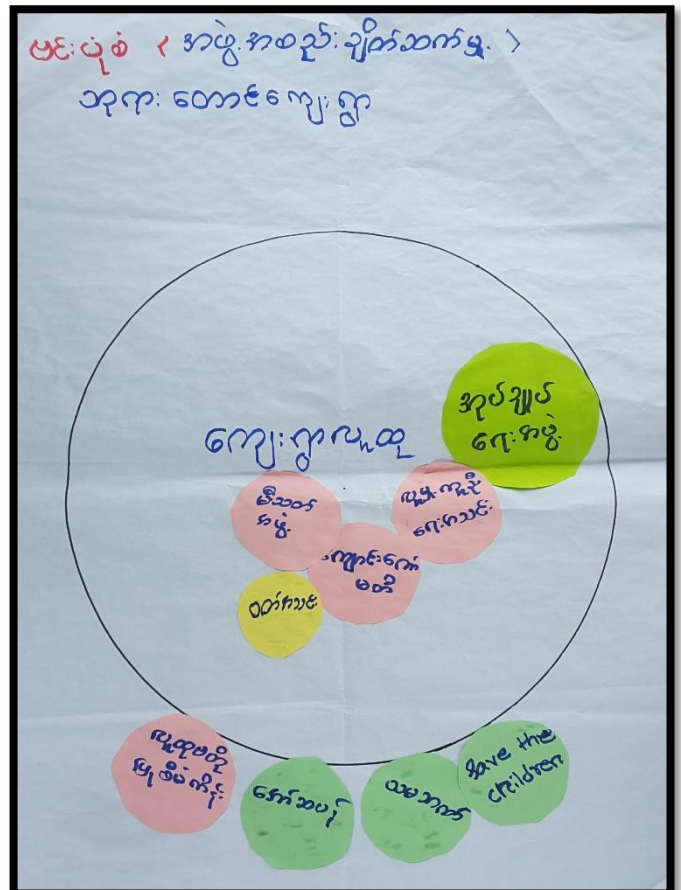 ဗင်းပုံစံ < အဖွဲ့အစည်းချိတ်ဆက်မှု >
ဘုရားတောင်ကျေးရွာ
အုပ်ချုပ်
ရေးအဖွဲ့
ကျေးရွာလူထု
မီးသတ်
အဖွဲ့
လူမှုကူညီ
ရေးအသင်း
ကျောင်းကော်
မတီ
ဝတ်အသင်း
လူထုဗဟို
ပြုစီမံကိန်း
အော်ဆပါ
ယမသက်
Save the
children